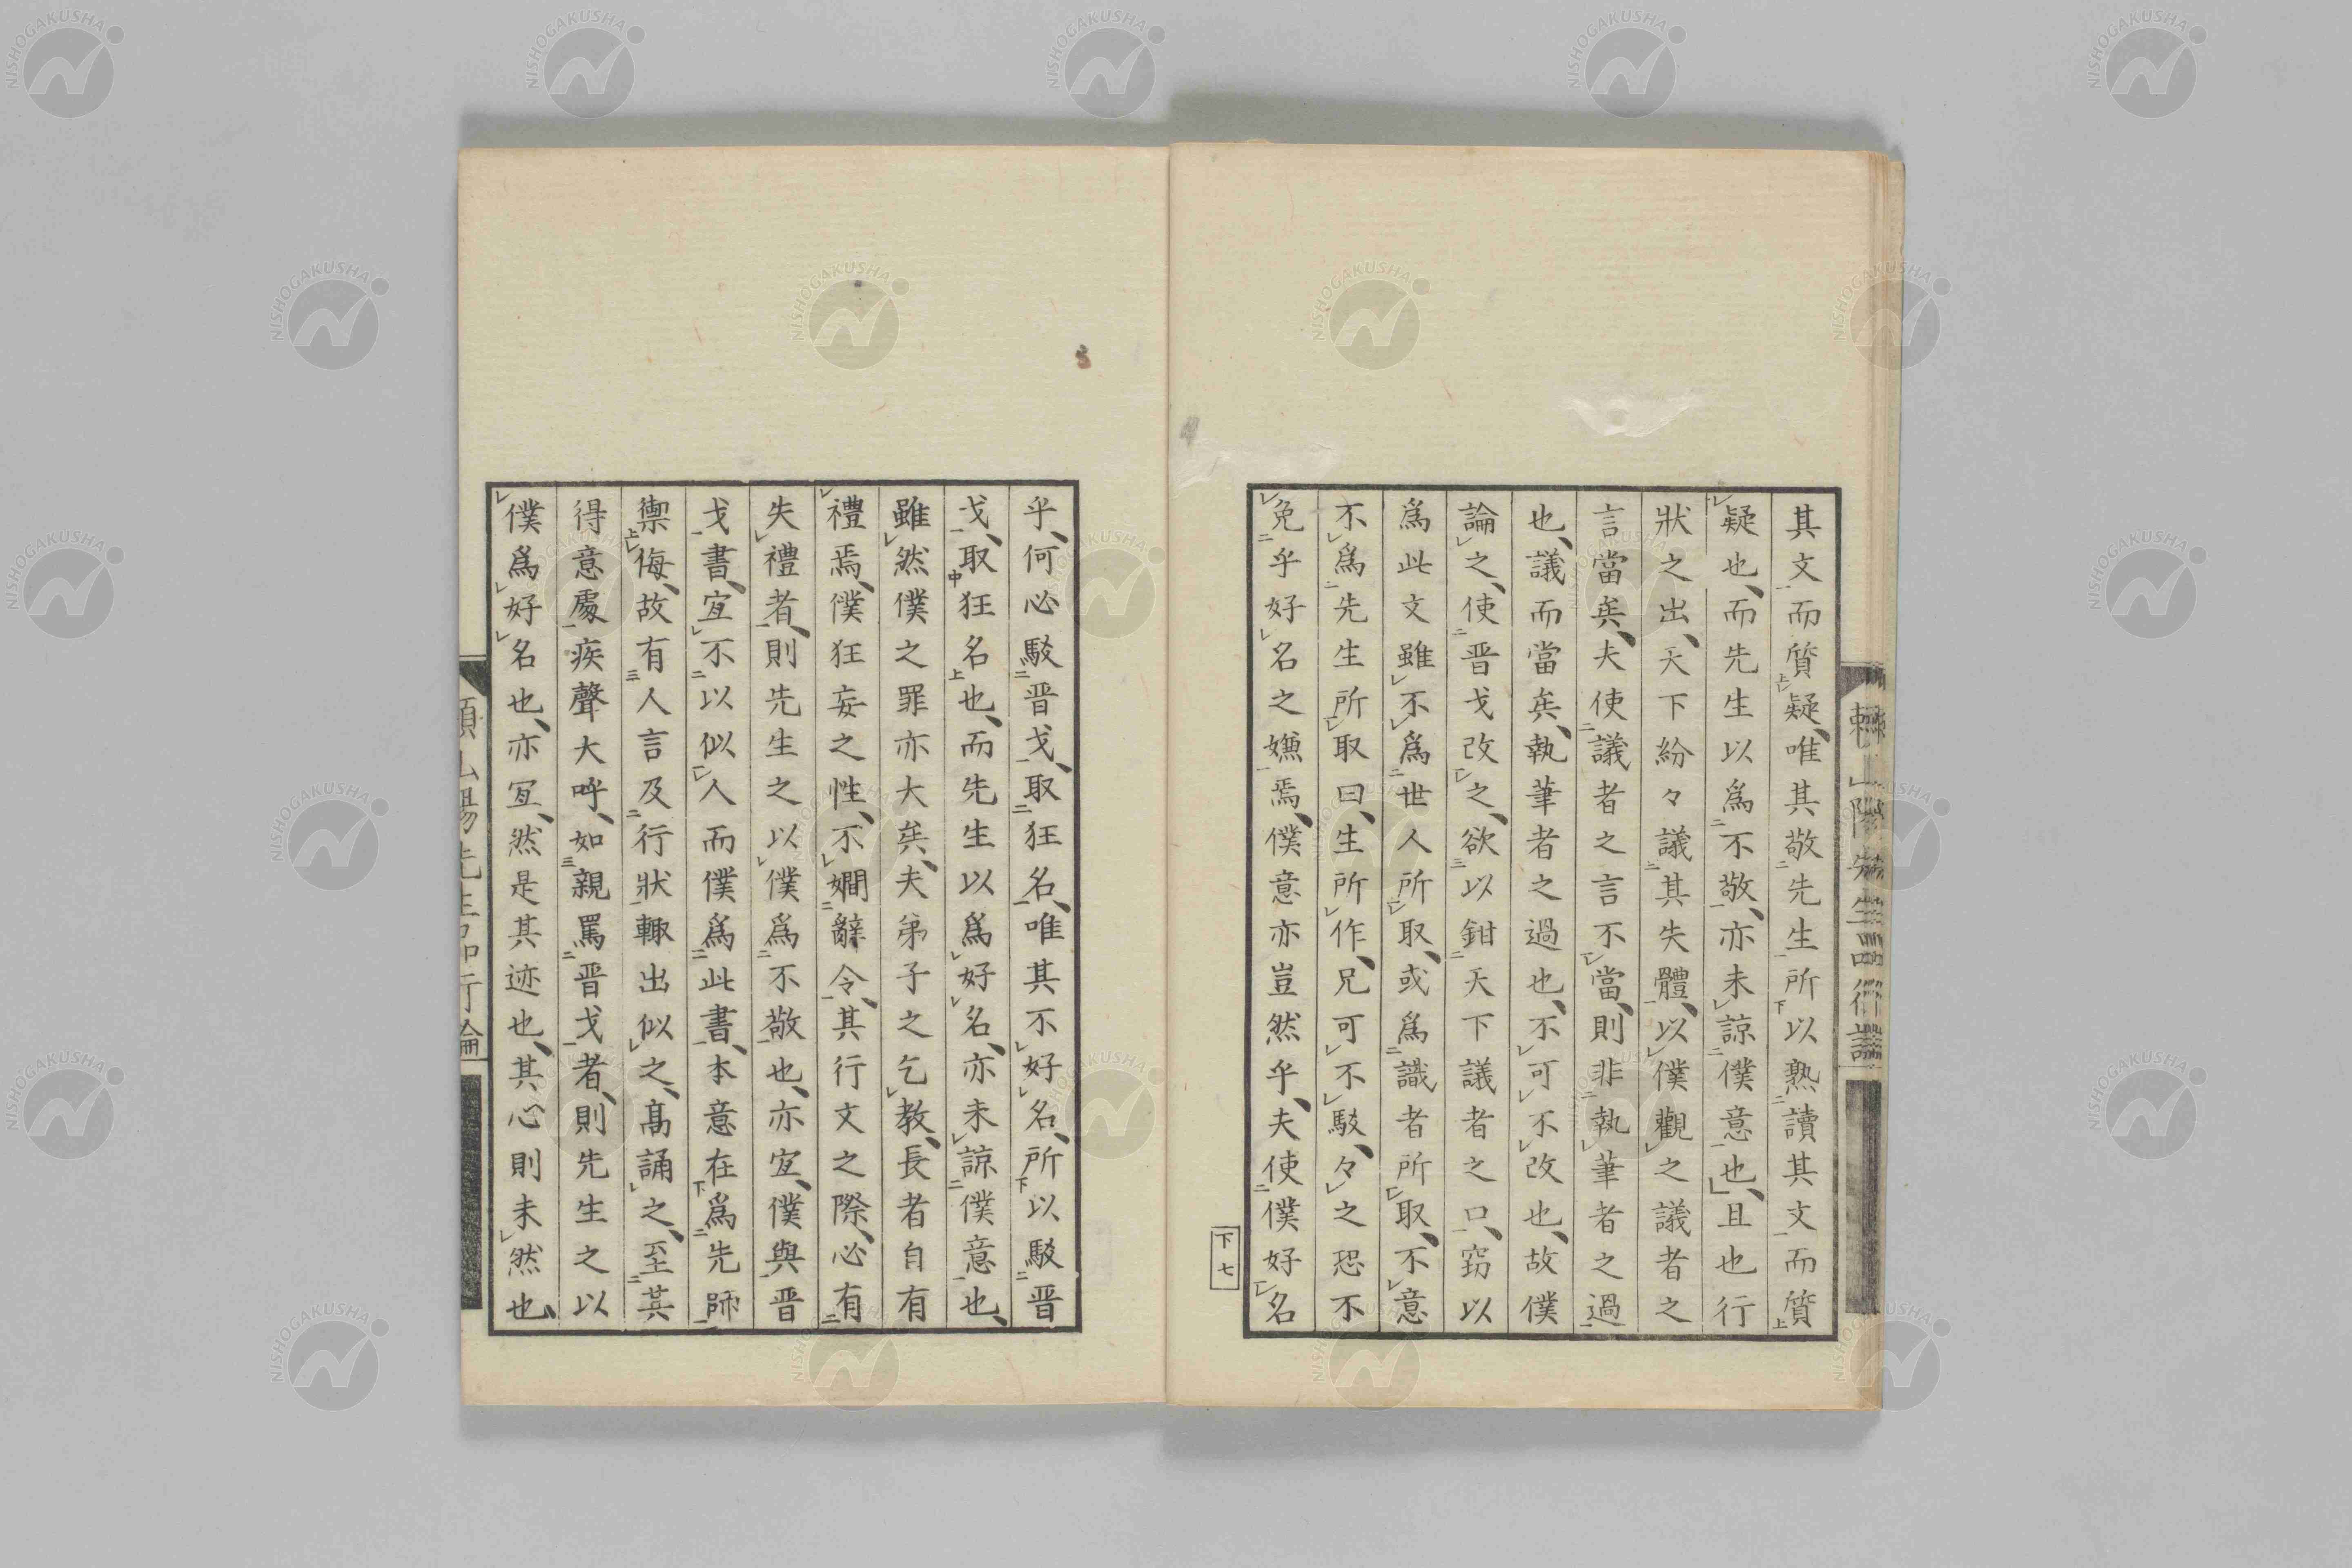 其文而質疑、唯其敬先生所以熟讀其文而質
疑也、而先生以為不敬、亦未諒僕意也、且也行
狀之出、天下紛々議其失體、以僕觀之議者之
言當矣、夫使議者之言不當、則非執筆者之過
也、議而當矣、執筆者之過也、不可不改也、故僕
論之、使晋戈改之、欲以鉗天下議者之口、窈以
爲此文雖不爲世人所取、或爲識者所取、不意
不爲先生所取曰、生所作、兄可不駁、々之恐不
免乎好名之嫌焉、僕意亦豈然乎、夫使僕好名
下七
乎、何必駁晋戈、取狂名、唯其不好名、所以駁晋
戈、取狂名也、而先生以爲好名、亦未諒僕意也、
雖然僕之罪亦大矣、夫弟子之乞教、長者自有
禮焉、僕狂妄之性、不嫺辭令、其行文之際、必有
失禮者、則先生之以僕爲不敬也、亦宜、僕與晋
戈書、宜不以似人而僕爲此書、本意在爲先師
禦侮、故有人言及行狀輙出似之、髙誦之、至其
得意處疾聲大呼、如親罵晋戈者、則先生之以
僕爲好名也、亦宜、然是其迹也、其心則未然也、